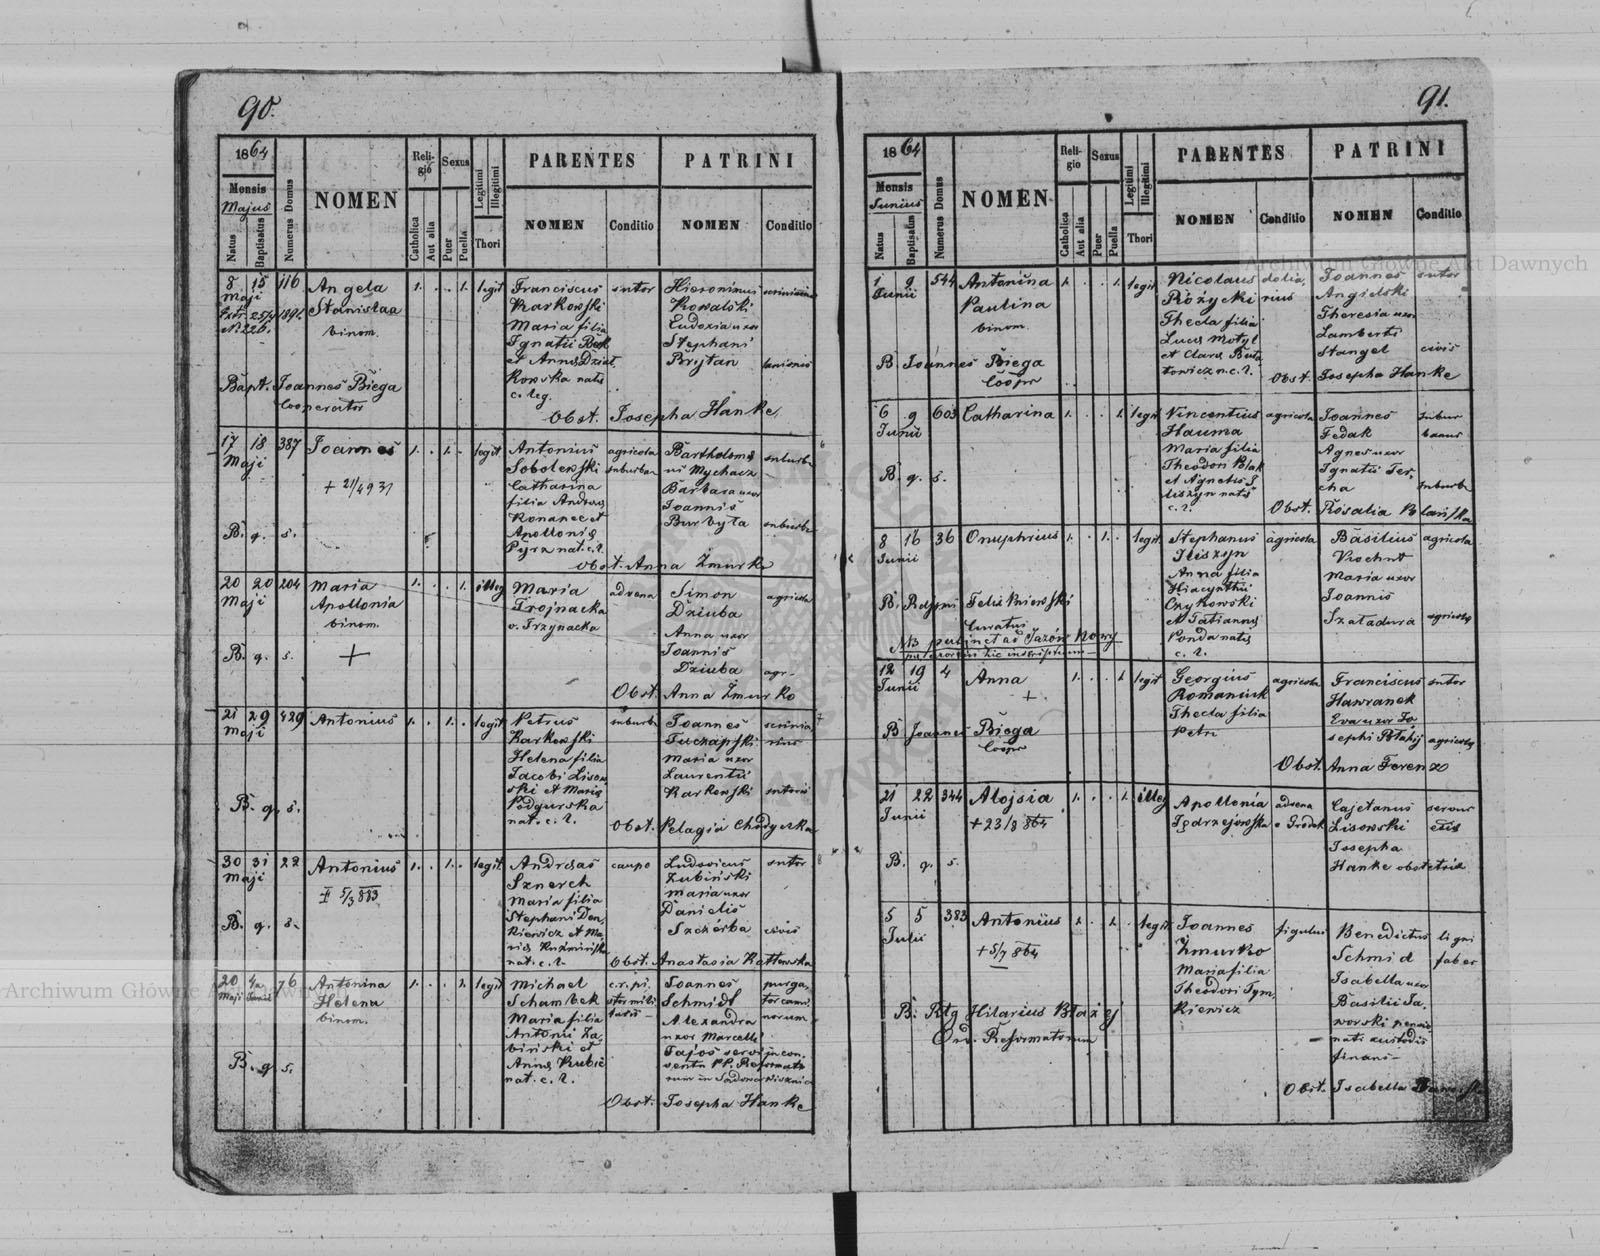 90.
1864
Mensis
Majus
Natus
Baptisatus
Numerus Domus
NOMEN
Religio
Catholica
Aut alia
Sexus
Puer
Puella
Legitimi
Illegitimi
Thori
PARENTES
NOMEN
Conditio
PATRINI
NOMEN
Conditio
8 15 116 Angela 1. . . 1. legit Franciscus sutor Hieronimus
Maji Stanislaa Karkowski Kowalski
binom. Maria filia Eudoxia uxor
Ignatii Stephani
et Anna Brÿtan
Kowska nata
c. leg.
Bapt. Joannes Biega
Cooperator
Obst. Josepha Hanke
17 18 387 Joannes 1. . 1. . legit Antonius agricola Bartholome
Maji Sobolewski suburban us Mychacz
+ 21/4 931 Catharina Barbara uxor
filia Andreas Joannis
Konanec et Burbyła suburb
B. q. s. Apollonia
Pyrz nat. c. l.
Obst. Anna Żmurko
20 20 204 Maria 1. . . 1. illeg Maria advena Simon agricola
Maji Apollonia Trojnacka Dziuba
binom. v. Trzynacka Anna uxor
B. q. s. + Joannis
Dziuba agr.
Obst. Anna Żmurko
21 29 429 Antonius 1. . 1. . legit Petrus suburb Joannes
Maji Karkowski Tuczapski
Helena filia Maria uxor
Jacobi Lisow Laurentii
ski et Maria Karkowski sutoris
B. q. s. Podgurska
nat. c. l.
Obst. Pelagia Chodyczka
30 31 22 Antonius 1. . 1. . legit. Andreas caupo Ludovicus sutor
Maji Sznerch Zubiński
5/3 883 Maria filia Maria uxor
Stephani Danielis
kiewicz et Ma Szczerba civis
B. q. s. ria Kuźmińska
nat. c. l. Obst. Anastasia Kotłowska
20 76 Antonina 1. . . 1. legit Michael c. r. pi Joannes purga
Maji Helena Schambek stor mili Schmidt tor cami
binom. Maria filia taris Alexandra norum
Antonii Za uxor Marcelli
biński et
B. q. s. Anna Kubic
nat. c. l.
Obst. Josepha Hanke
91.
1864
Mensis
Junius
Natus
Baptisatus
Numerus Domus
NOMEN
Religio
Catholica
Aut alia
Sexus
Puer
Puella
Legitimi
Illegitimi
Thori
PARENTES
NOMEN
Conditio
PATRINI
NOMEN
Conditio
1 9 544 Antonina 1. . . 1. legit Nicolaus dolia Joannes sutor
Junii Paulina Różycki rius Angielski
binom. Thecla filia Theresia uxor
Lucas Motyl Lamberti
et Clara Stangel civis
B Joannes Biega
Coopr
Obst. Josepha Hanke
6 9 603 Catharina 1. . . 1. legit Vincentius agricola Joannes subur
Junii Hauma Fedak banus
Maria filia Agnes uxor
Theodori Ignatii Fer
et Agnetis cha suburb
B. q. s. nata
c. l. Obst. Rosalia
8 16 36 Onuphrius 1. . 1. . legit. Stephanus agricola Basilius agricola
Junii Iliszyn
Anna filia Maria uxor
Hiacynthii Joannis
Czykowski Szaładura agricola
et Tatianna
c. l.
B. Felix Kniewski
Curatus
NB pertinet ad Jazów Nowy
per errorem hic inscriptum
12 19 4 Anna 1. . . 1. legit Georgius agricola Franciscus sutor
Junii + Romaniuk Hawranek
Thecla filia Eva uxor Jo
Petri sephi agricola
B Joannes Biega
Coopr
Obst. Anna Ferenz
21 22 344 Alojsia 1. . . 1. illeg Apollonia advena Cajetanus servus
Junii + 23/8 864 Jędrzejowska e Grodek Lisowski
Josepha
B. q. s. Hanke obstetrix
5 5 383 Antonius 1. . 1. . legit Joannes figulus Benedictus ligni
Julii + 5/7 864 Żmurko Schmid faber
Maria filia Isabella uxor
Theodori Tym Basilii Ja
kiewicz worski
B: Hilarius Błażej
Ord. Reformatorum
Obst. Isabella
Archiwum Główne Akt Dawnych
Archiwum Główne Akt Dawnych